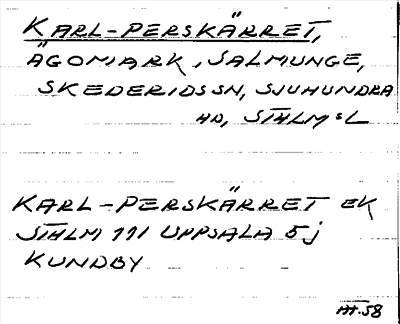 KARL-PERSKÄRRET,
ÄGOMARK, SALMUNGE,
SKEDERIDS SN, SJUHUNDRA
HD, STHLMS L
KARL-PERSKÄRRET EK
STHLM 111 UPPSALA 5j
KUNDBY
.58